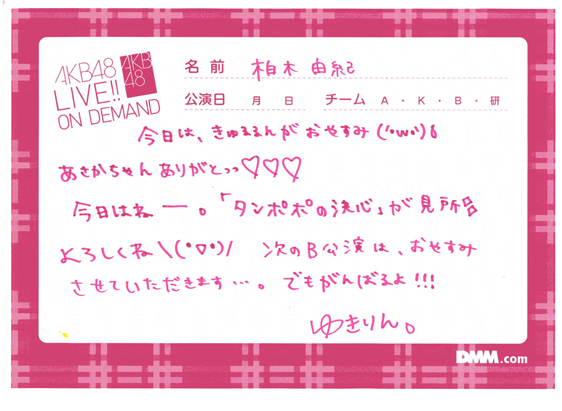 AKB48
LIVE!!
ON DEMAND
AKB
48
名前 柏木由紀
公演日 月 日 チーム A・K・B・研
今日は、きゅるるんがおやすみ('ω')
あきかちゃんありがとっっ♡♡♡
今日はねー。「タンポポの決心」が見所
よろしくね\(°▽°)/ 次のB公演は、おやすみ
させていただきます…。でもがんばるよ!!!
ゆきりん。
DMM.com